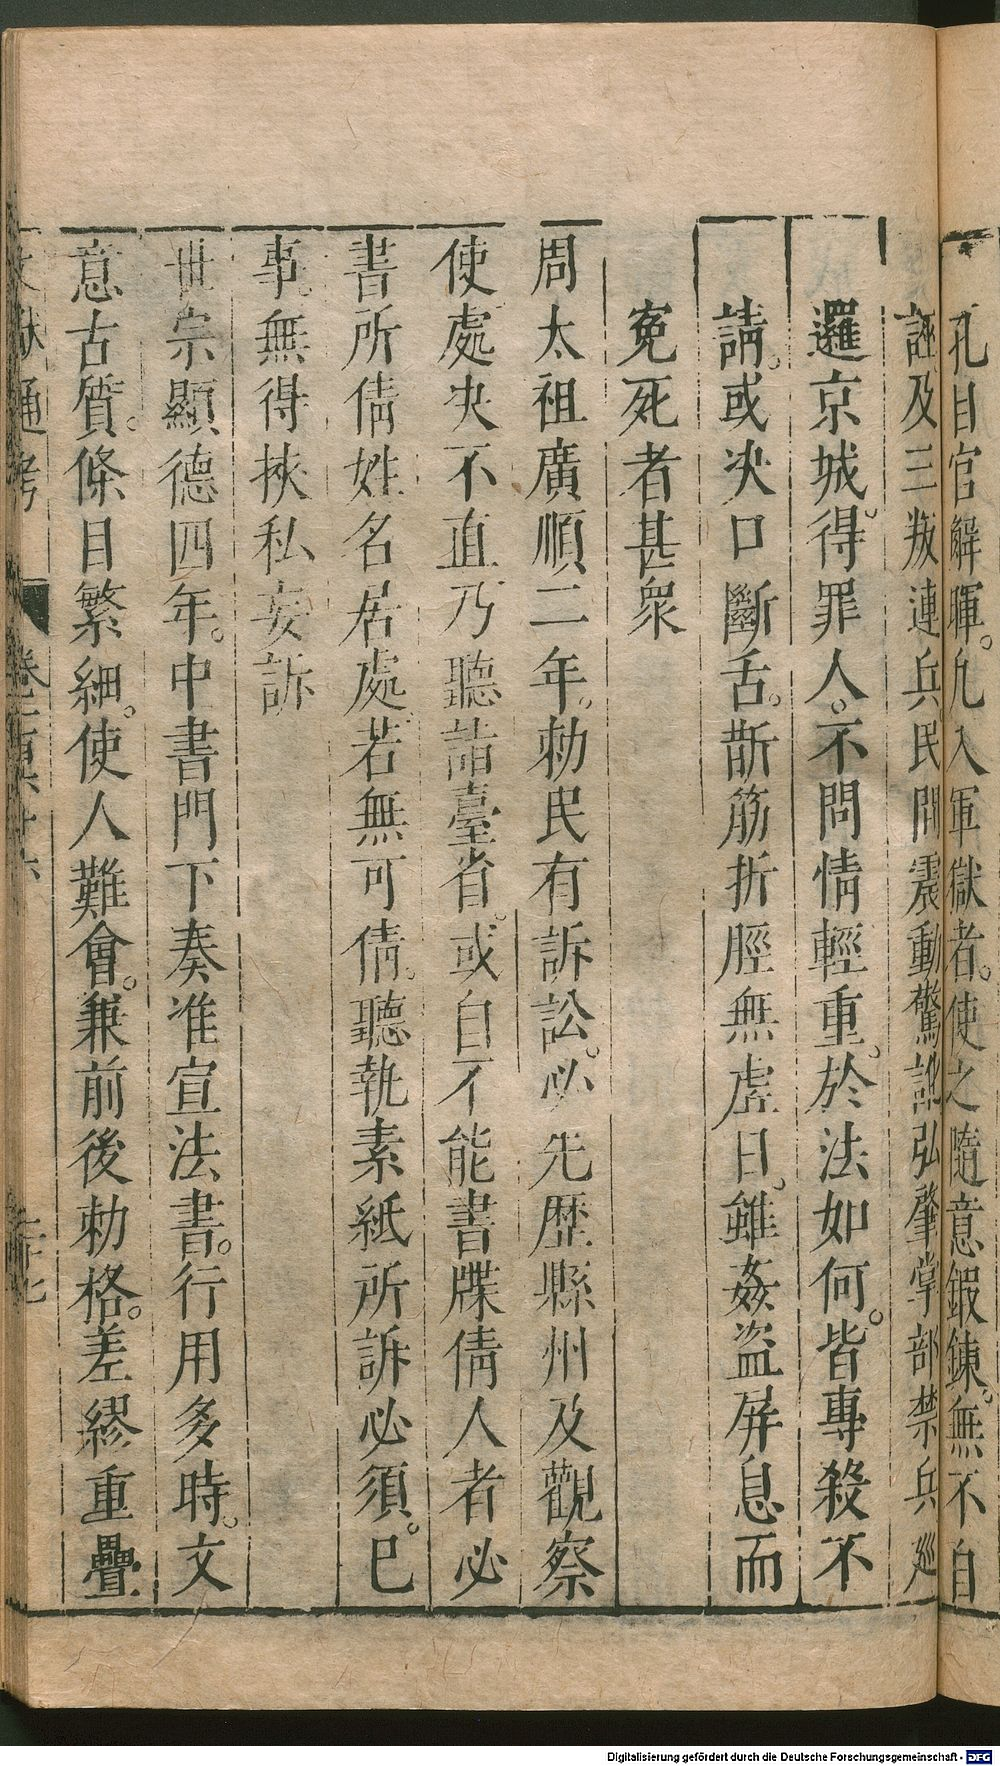 孔目官解暉。凡入軍獄者。使之隨意鍛鍊。無不自
誣及三叛連兵。民間震動驚訛弘肇掌部禁兵廵
邏京城。得罪人。不問情輕重。於法如何。皆專殺不
請。或决口斷舌。斮筋折脛無虛日。雖姦盜屏息而
寃死者甚衆
周太祖廣順二年。勅民有訴訟。必先歴縣州及觀察
使處决不直乃聽詣臺省。或自不能書牒倩人者必
書所倩姓名居處若無可倩。聽執素紙所訴必須。已
事。無得挾私妄訴
世宗顯德四年。中書門下奏准宣法書。行用多時。文
意古質。條目繁細。使人難會。兼前後勅格。差繆重疊
文獻通考 卷一百六十六 二十七
Digitalisierung gefördert durch die Deutsche Forschungsgemeinschaft - DFG